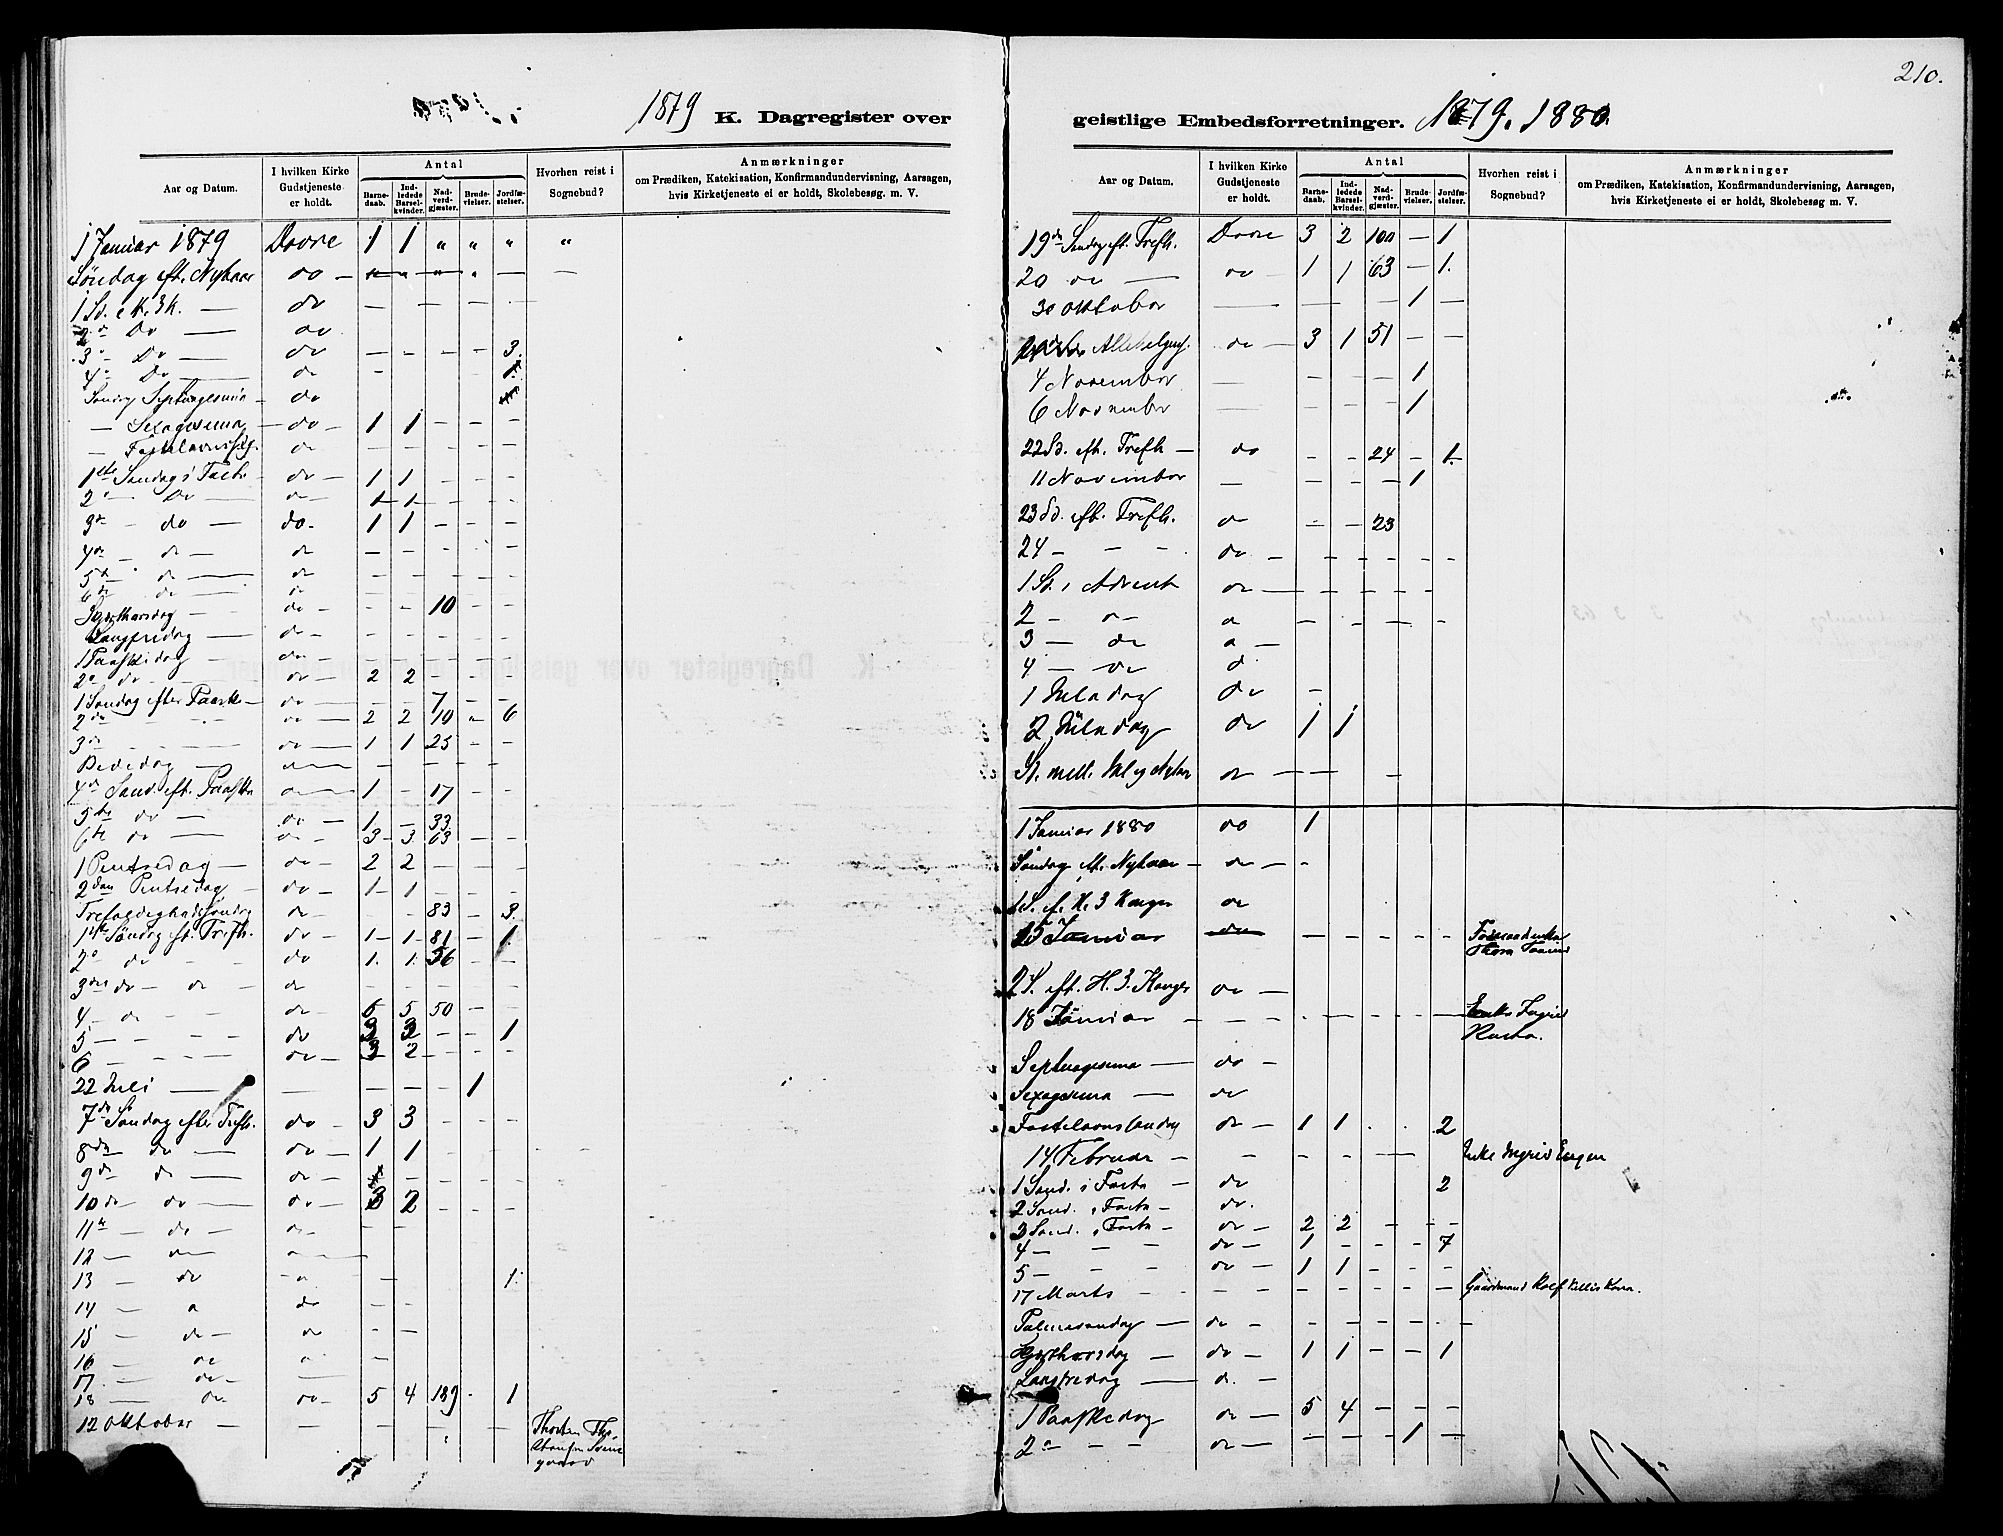 1879 K. Dagregister over
Aar og Datum. I hvilken Kirke Gudstjeneste er holdt. Antal Barnedaab. Indledede Barselkvinder. Nadverdgjæster. Brudevielser. Jordfæstelser. Hvorhen reist i Sognebud? Anmærkninger om Prædiken, Katekisation, Konfirmandundervisning, Aarsagen, hvis Kirketjeneste ei er holdt, Skolebesøg m. V.
1 Januar 1879 Dovre 1 1 " " " "
Søndag eft. Nytaar do — " " " " — —
1 Sd. e. H. 3 K. — do — — — — —
2 " Do — do
3 " Do — do — - - - 3
4 " Do — do - - 1
Søndag Septuagesima — do
— Sexagesima — do — 1 1 - - -
— Fastelavns do - - - - -
1ste Søndag i Faste do — 1 1 - - -
2 — Do — do — 1 1 - - -
3de - do — do - 1 1 - - -
4de — do — do — — - - -
5te — do — do — — - - -
6te do — do - - - - -
Skjærthorsdag — do - - - 10 - -
Langfredag — do - - - - - -
1 Paaskedag — do - - - - - -
2de do — do — 2 2 - - -
1 Søndag efter Paaske — do — — — 7 — —
2de - - - do — 2 2 10 - 6
3de - - - do — 1 1 25 - -
Bededag — do — - — — — —
4de Sønd. eft. Paaske do — 1 - 17 - -
5te do — do - 1 - 33
6te do — do - 3 - 3 63 - -
1 Pintsedag — do - 2 2 - - -
2den Pintsedag — do - 1 - 1 - - -
Trefoldighedssøndag do - - - 83 - 3
1ste Søndag eft. Trefh. do - 1 - 1 - 81 - 1
2 " do - - do 1. 1. 56 - -
3die do — do - do - - - - -
4 — do - - do - 5 5 50 -
5 — - - - do 3 3 - - 1
6 — - - - do — 3 2 - - -
22 Juli — — — — — 1
7de Søndag efter Trefh. do - 3 3 - - -
8de do — do - 1 1 - - -
9de do — do -
10de do — do - 3 2 - - -
11te — do — do -
12 — do do
13 — do do — 1.
14 — do do - -
15 — do — do - —
16 — do do —
17 — do —
18 — do do - 5 4 189 - 1
12 Oktober — — — — — — Thorsten
210.
geistlige Embedsforretninger. 1879. 1880.
Aar og Datum. I hvilken Kirke Gudstjeneste er holdt. Antal Barnedaab. Indledede Barselkvinder. Nadverdgjæster. Brudevielser. Jordfæstelser. Hvorhen reist i Sognebud? Anmærkninger om Prædiken, Katekisation, Konfirmandundervisning, Aarsagen, hvis Kirketjeneste ei er holdt, Skolebesøg m. V.
19de Søndag eft. Trefh. Dovre 3 2 100 — 1
20 do — do — 1 1 63 — 1.
30 Oktober — — — 1 —
Allehelgens. do — 3 1 51 — —
4 November — - - - 1
6 November — - - - 1
22 Sd. eft. Trefh — do - - 24 - 1.
11 November — - - - 1
23 Sd. eft. Trefh. do - - 23
24 — — - do — - - - - -
1 Sd. i Advent do — - - - - -
2 - do - do — - - - -
3 — do do —
4 — do do
1 Juledag do —
2 Juledag do 1 1
Sd. mell. Jul og Nytaar do — — — —
1 Januar 1880 do 1
Søndag eft. Nytaar — do — -
1 S. ef. H. 3 Konger do
15 Januar do - - - - -
2 S. eft. H. 3. Konger do —
18 Januar - - - - - — Enke Ingrid
Septuagesima — do -
Sexagesima — do
Fastelavnssøndag do — 1 1 . . 2
14 Februar - - - - — - Enke Ingrid Engen
1 Sønd. i Faste — do 2
2 Sønd. i Faste — do.
3 Sønd. i Faste — do — 2 2 - - -
4 — - - do — 1 - - - 7
5 — - - do — 1 1 - - -
17 Marts - - - - - - — Gaardmand Rolf
Palmesøndag — do — - - - - - -
Skjærthorsdag — do — 1 1 - - 1
Langfredag — do —
1 Paaskedag do — 5 4 - - -
2 " - - do — — - - 1 —